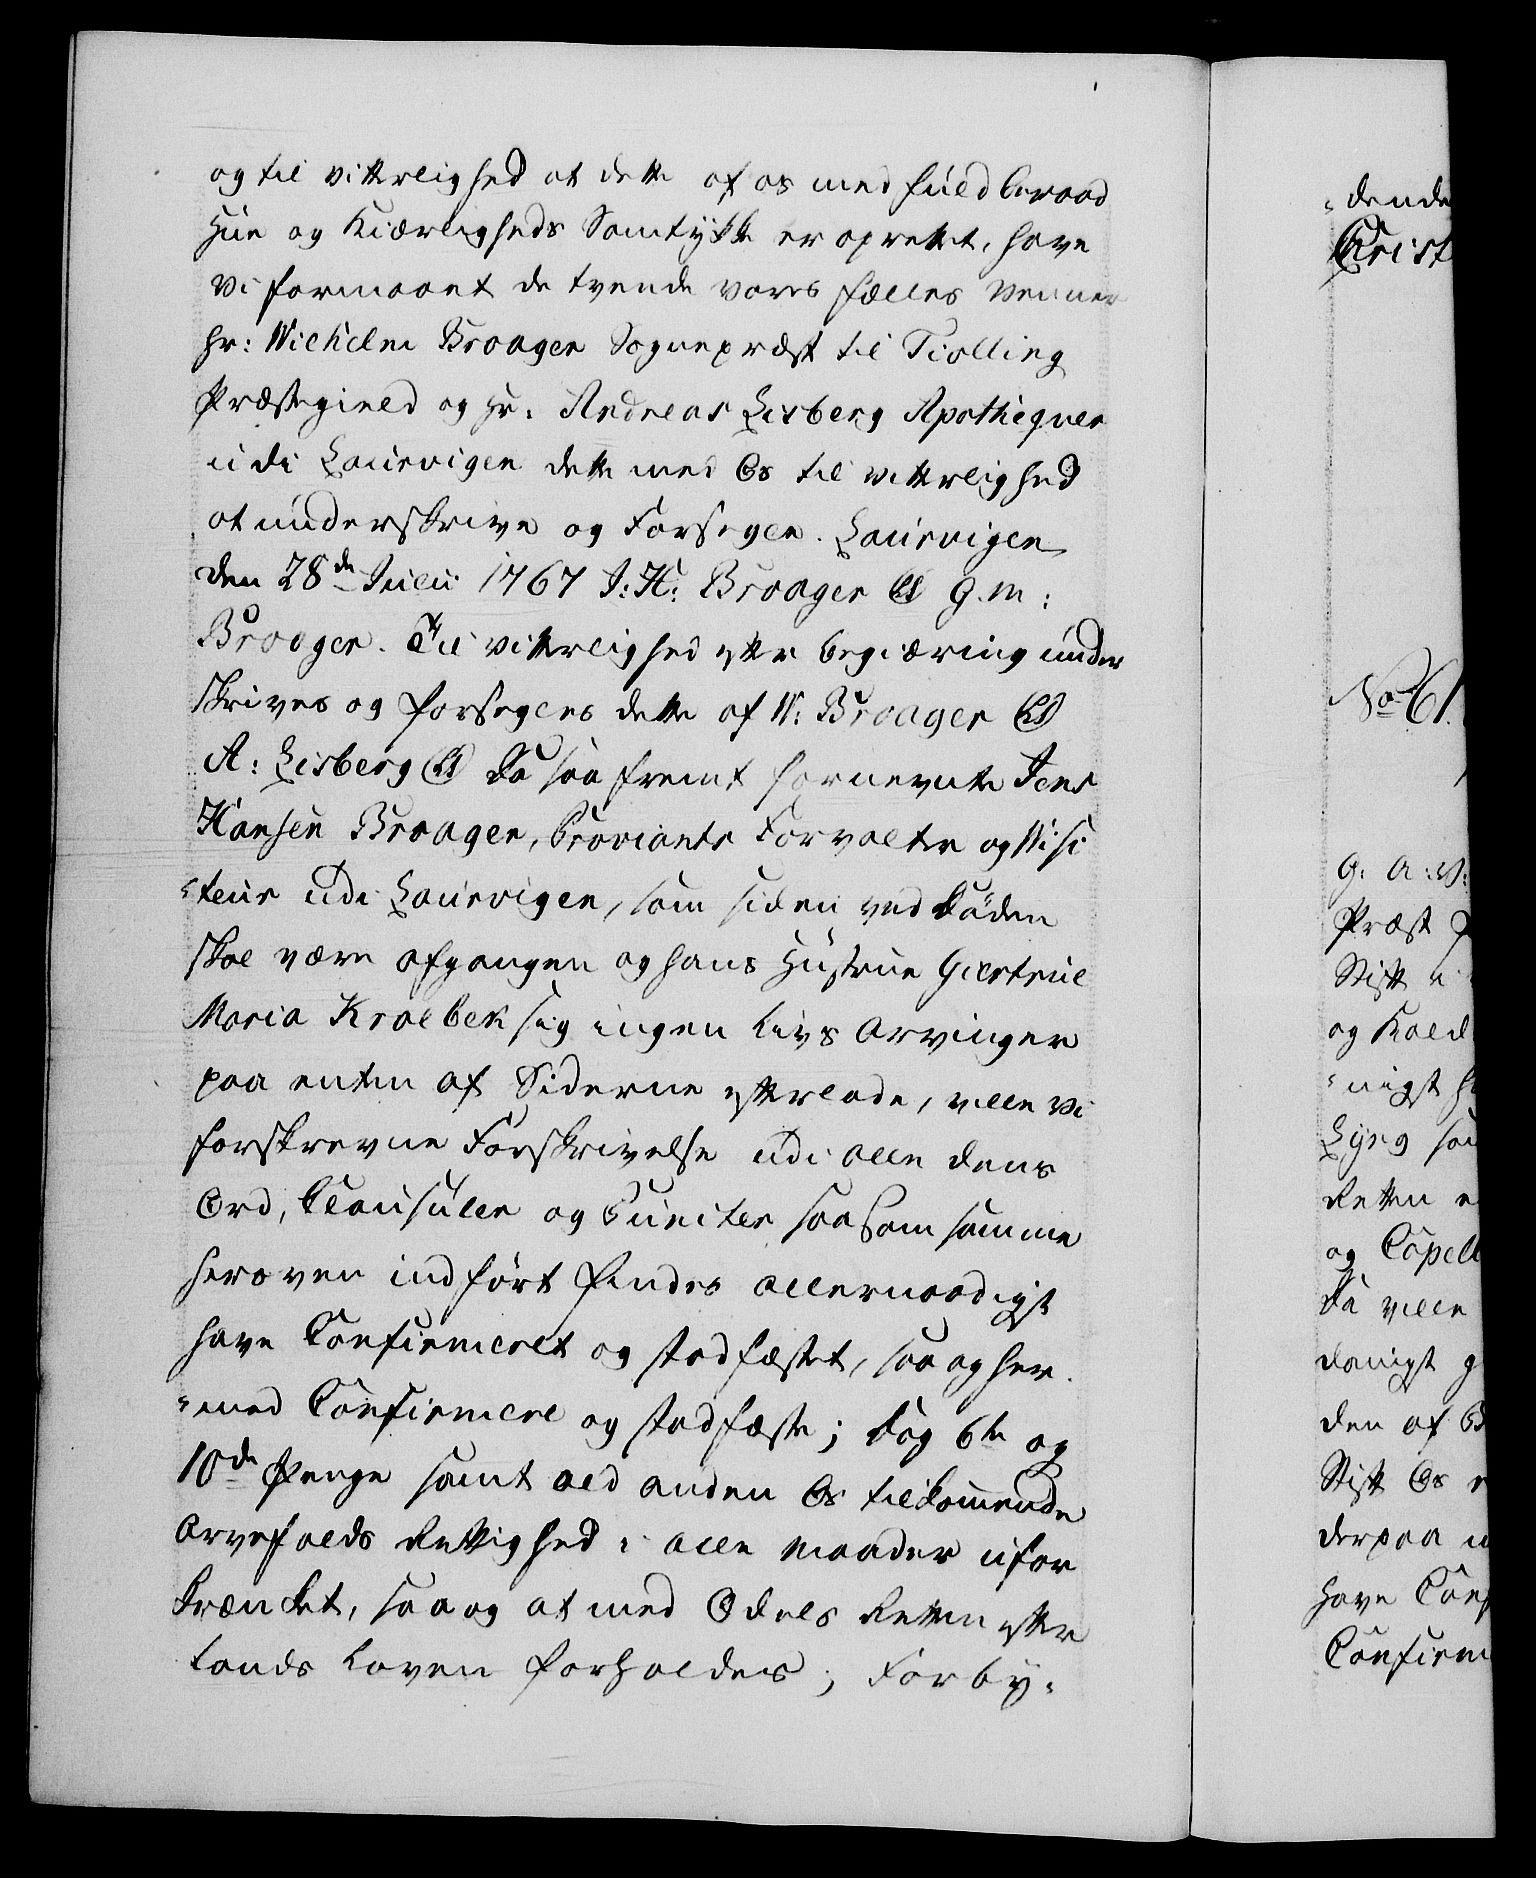 og til vitterlighed at dette af os med fuld beraad
Hue og Kiærligheds Samtykke er oprettet, have
vi formaaet de tvende vores fælles Venner
Hr: Wilhelm Broager Sognepræst til Tiølling
Præstegield og Hr. Andreas Lisberg Apothequer
udi Laurvigen dette med Os til vitterlighed
at underskrive og Forsegle. Laurvigen
den 28de Julii 1767 J: H: Broager (LS) G. M:
Broager. Til vitterlighed efter begiæring under
skrives og forsegles dette af W: Broager (LS)
A: Lisberg (LS) Da saa fremt fornevnte Jens
Hansen Broager, Proviants Forvalter og Visi
-teur udi Laurvigen, som siden ved Døden
skal være afgangen og hans Hustrue Giertrud
Maria Kralbek sig ingen Livs Arvinger
paa enten af Siderne efterlade, ville vi
forskrevne Forskrivelse udi alle dens
Ord, Clausuler og Puncter saasom samme
heroven indført findes allernaadigst
have Confirmeret og stadfæstet, saa og her
-med Confirmere og stadfæste; Dog 6te og
10de Penge samt ald anden Os tilkommende
Arvefalds Rettighed i alle Maader ufor
krænket, saa og at med Odels Retten efter
Lands Loven forholdes; Forby-
-dende
Christ
No 61.
G: A: V:
Præst
Stift i
og Kald
-nigst
Lyng saa
Retten e
og Capell
Da ville
danigst g
den af
Stift Os
derpaa
have Conf
Confirm